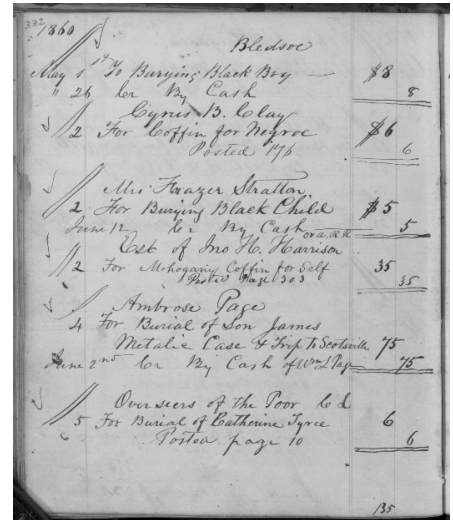 332
1860
Bledsoe
May 1st To Burying Black Boy — $8
" 26 Cr By Cash 8
Cyrus B. Clay
2 For Coffin for Negroe $6
Posted 176 6
Mrs. Frazer Stratton
2 For Burying Black Child $5
June 12 Cr By Cash 5
Est of Jno H. Harrison
2 For Mohogany Coffin for Self 35
Posted Page 303 35
Ambrose Page
4 For Burial of Son James
Metalic Case & Trip to Scotsville 75
June 2nd Cr By Cash of Wm L Page 75
Overseers of the Poor
5 For Burial of Catherine Tyree 6
Posted page 10 6
135